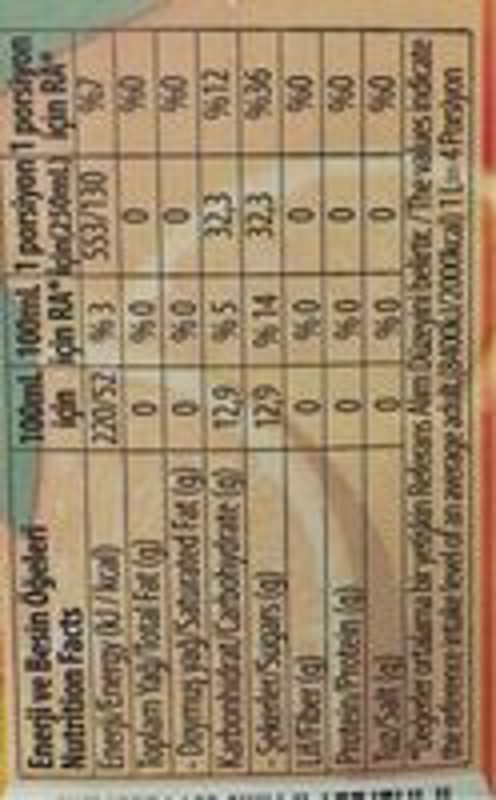 Enerji ve Besin Öğeleri 100mL 100mL 1 porsiyon 1 porsiyon
Nutrition Facts için için RA* için(250mL) için RA*
Enerji/Energy (kJ / kcal) 220/52 %3 553/130 %7
Toplam Yağ/Total Fat (g) 0 %0 0 %0
- Doymuş yağ/ Saturated Fat (g) 0 %0 0 %0
Karbonhidrat/Carbohydrate (g) 12,9 %5 32,3 %12
- Şekerler/Sugars (g) 12,9 %14 32,3 %36
Lif/Fiber (g) 0 %0 0 %0
Protein/Protein (g) 0 %0 0 %0
Tuz/Salt (g) 0 %0 0 %0
*Değerler ortalama bir yetişkin Referans Alım Düzeyini belirtir. / The values indicate
the reference intake level of an average adult.(8400kJ/2000kcal) 1 L= 4 Porsiyon